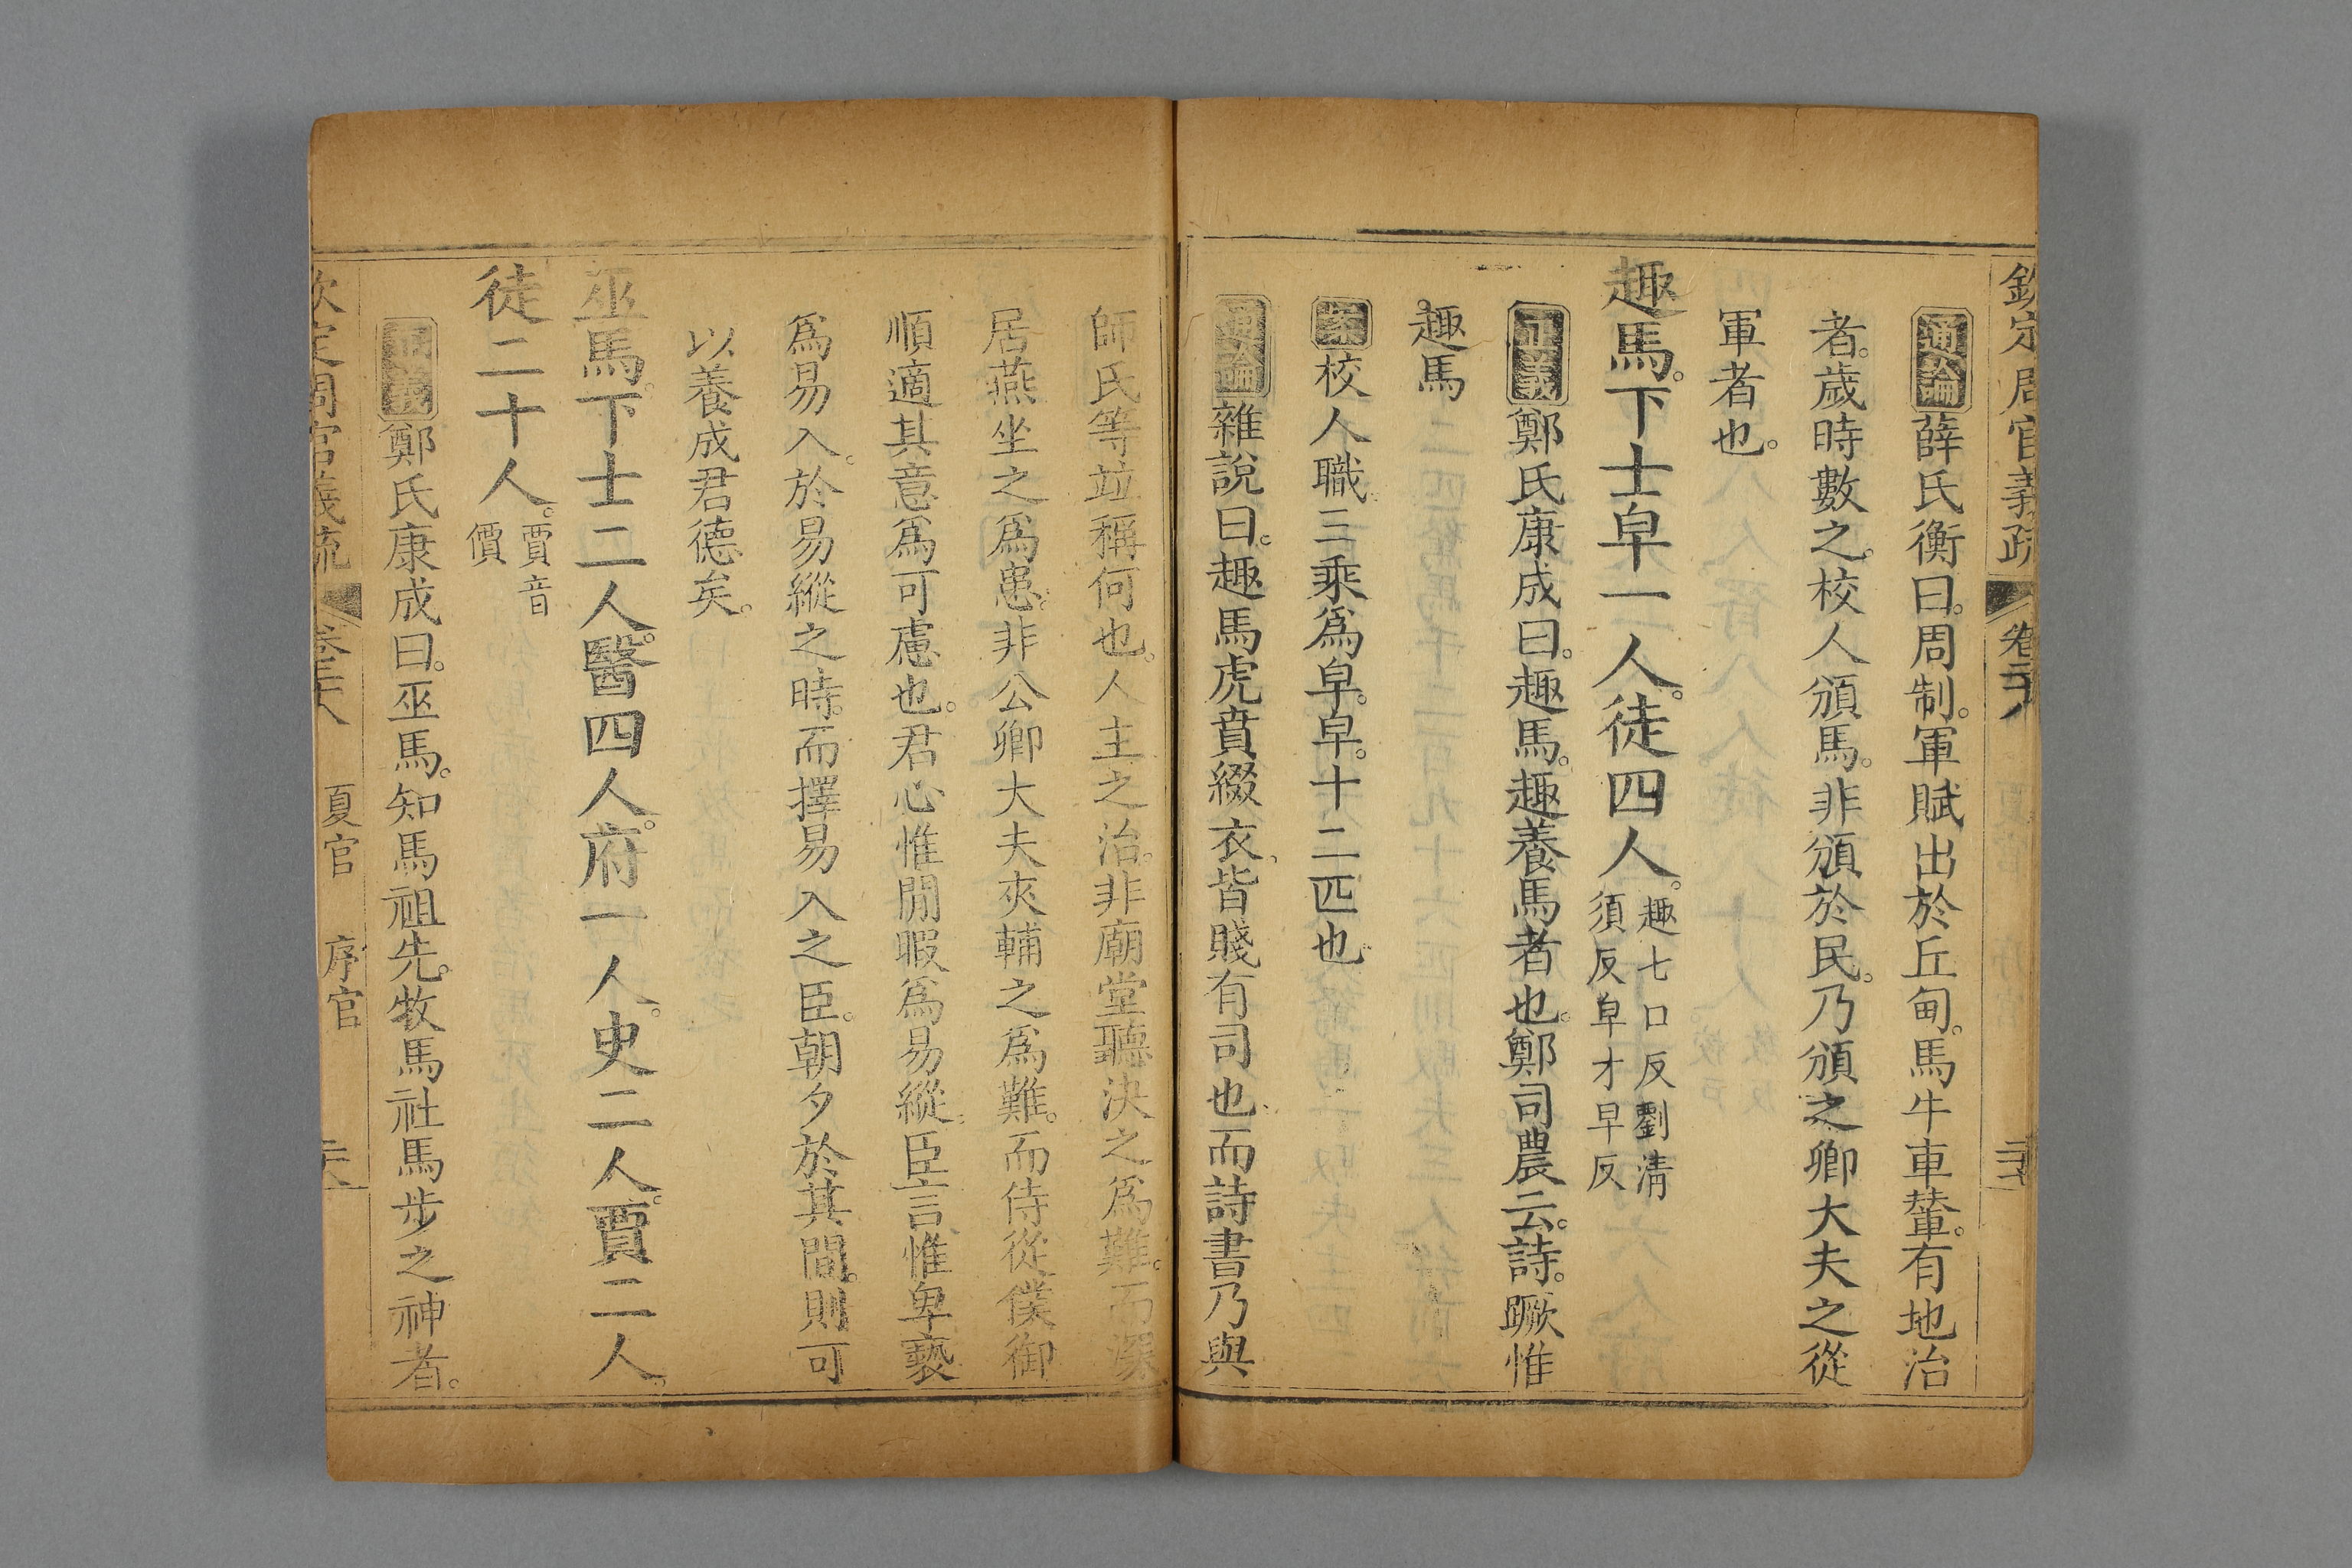 欽定周官義疏 卷二十八
通論薛氏衡曰。周制。軍賦出於丘甸。馬牛車輦。有地治
者。歲時數之。校人頒馬。非頒於民。乃頒之卿大夫之從
軍者也。
趣馬。下士皁一人。徒四人。趣七口反劉清須反皁才早反
正義鄭氏康成曰。趣馬。趣養馬者也。鄭司農云。詩。蹶惟
趣馬
案校人職。三乘爲皁。皁。十二匹也
通論雜說曰。趣馬虎賁綴衣。皆賤有司也。而詩書乃與
師氏等竝稱何也。人主之治。非廟堂聽決之爲難。而深
居燕坐之爲患。非公卿大夫夾輔之爲難。而侍從僕御
順適其意爲可慮也。君心惟閒暇爲易縱。臣言惟卑褻
爲易入。於易縱之時。而擇易入之臣。朝夕於其間。則可
以養成君德矣。
巫馬。下士二人。醫四人。府一人。史二人。賈二人。
徒二十人。賈音價
正義鄭氏康成曰。巫馬。知馬祖先。牧馬社馬步之神者。
欽定周官義疏 卷二十八 夏官 序官